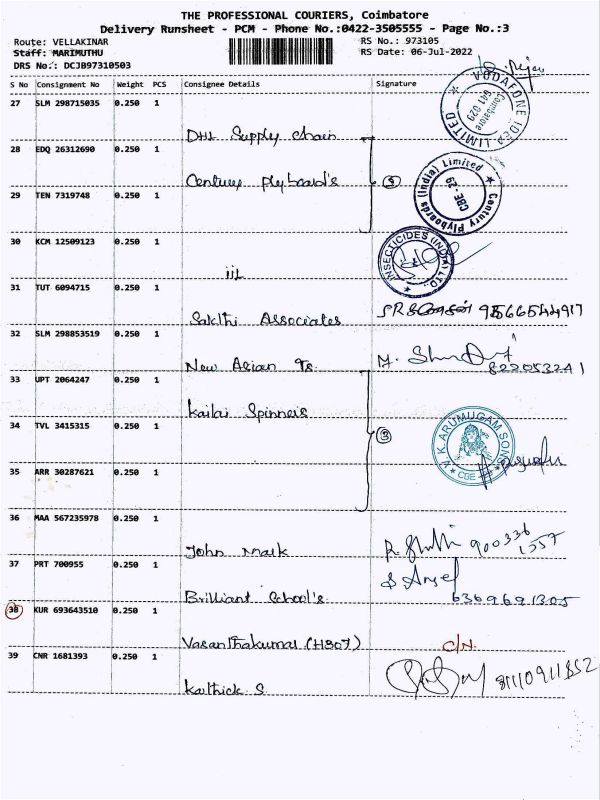 THE PROFESSIONAL COURIERS, Coimbatore
Delivery Runsheet - PCM - Phone No.:0422-3505555 - Page No.:3
Route: VELLAKINAR RS No.: 973105
Staff: MARIMUTHU RS Date: 06-Jul-2022
DRS No.: DCJB97310503
S No Consignment No Weight PCS Consignee Details Signature
27 SLM 298715035 0.250 1 DHL Supply Chain
VODAFONE IDEA LIMITED
Coimbatore
641 029
28 EDQ 26312690 0.250 1 Century Plyboard's
3
Century Plyboards (India) Limited
CBE - 29
29 TEN 7319748 0.250 1
30 KCM 12509123 0.250 1 iiL
INSECTICIDES (INDIA) LTD.
31 TUT 6094715 0.250 1 Sakthi Associates
32 SLM 298853519 0.250 1 New Asian Ts.
33 UPT 2064247 0.250 1 Kailai Spinners
34 TVL 3415315 0.250 1
3
V.K. ARUMUGAM SONS
CBE
35 ARR 30287621 0.250 1
36 MAA 567235978 0.250 1 John Mark
37 PRT 700955 0.250 1 Brilliant School's
6369691305
38 KUR 693643510 0.250 1 Vasanthakumar (H307) C/N.
39 CNR 1681393 0.250 1 Kathick S.